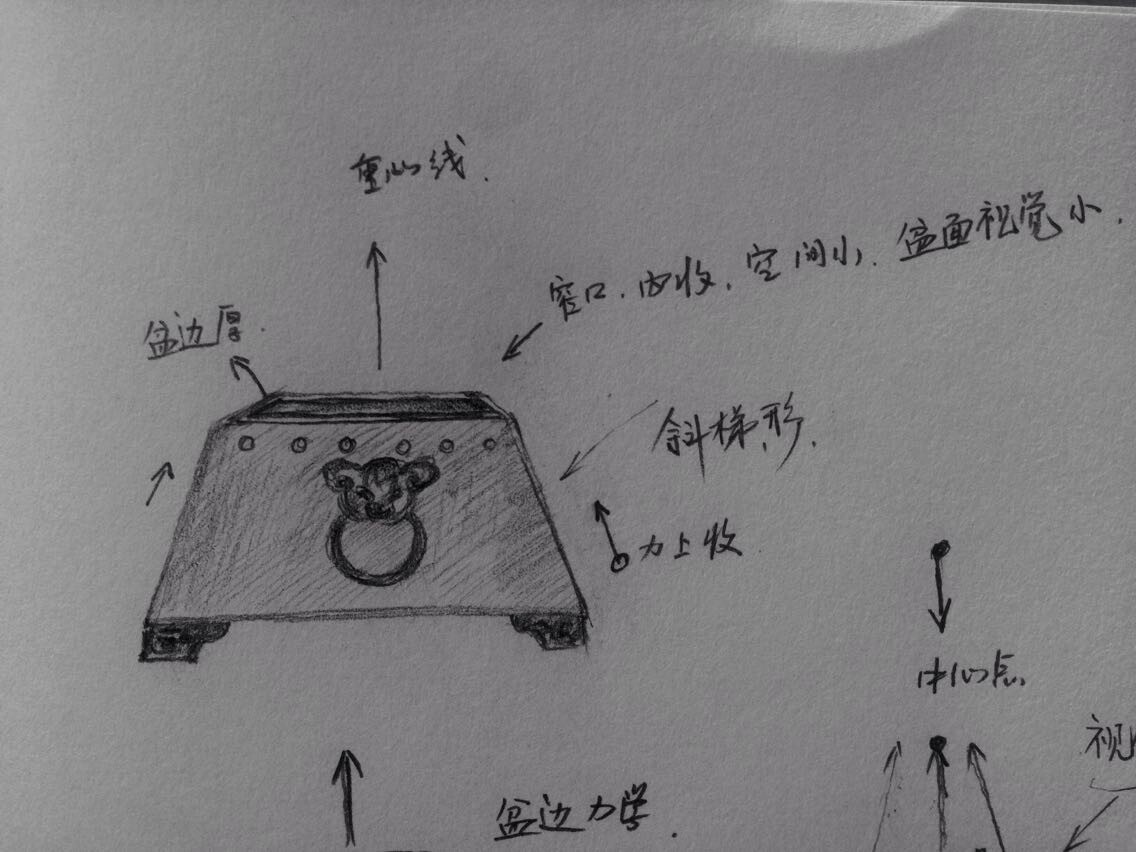 重心线.
窄口.内收.空间小.盆面视觉小.
盆边厚.
斜梯形.
力上收
中心点
视
盆边力学.